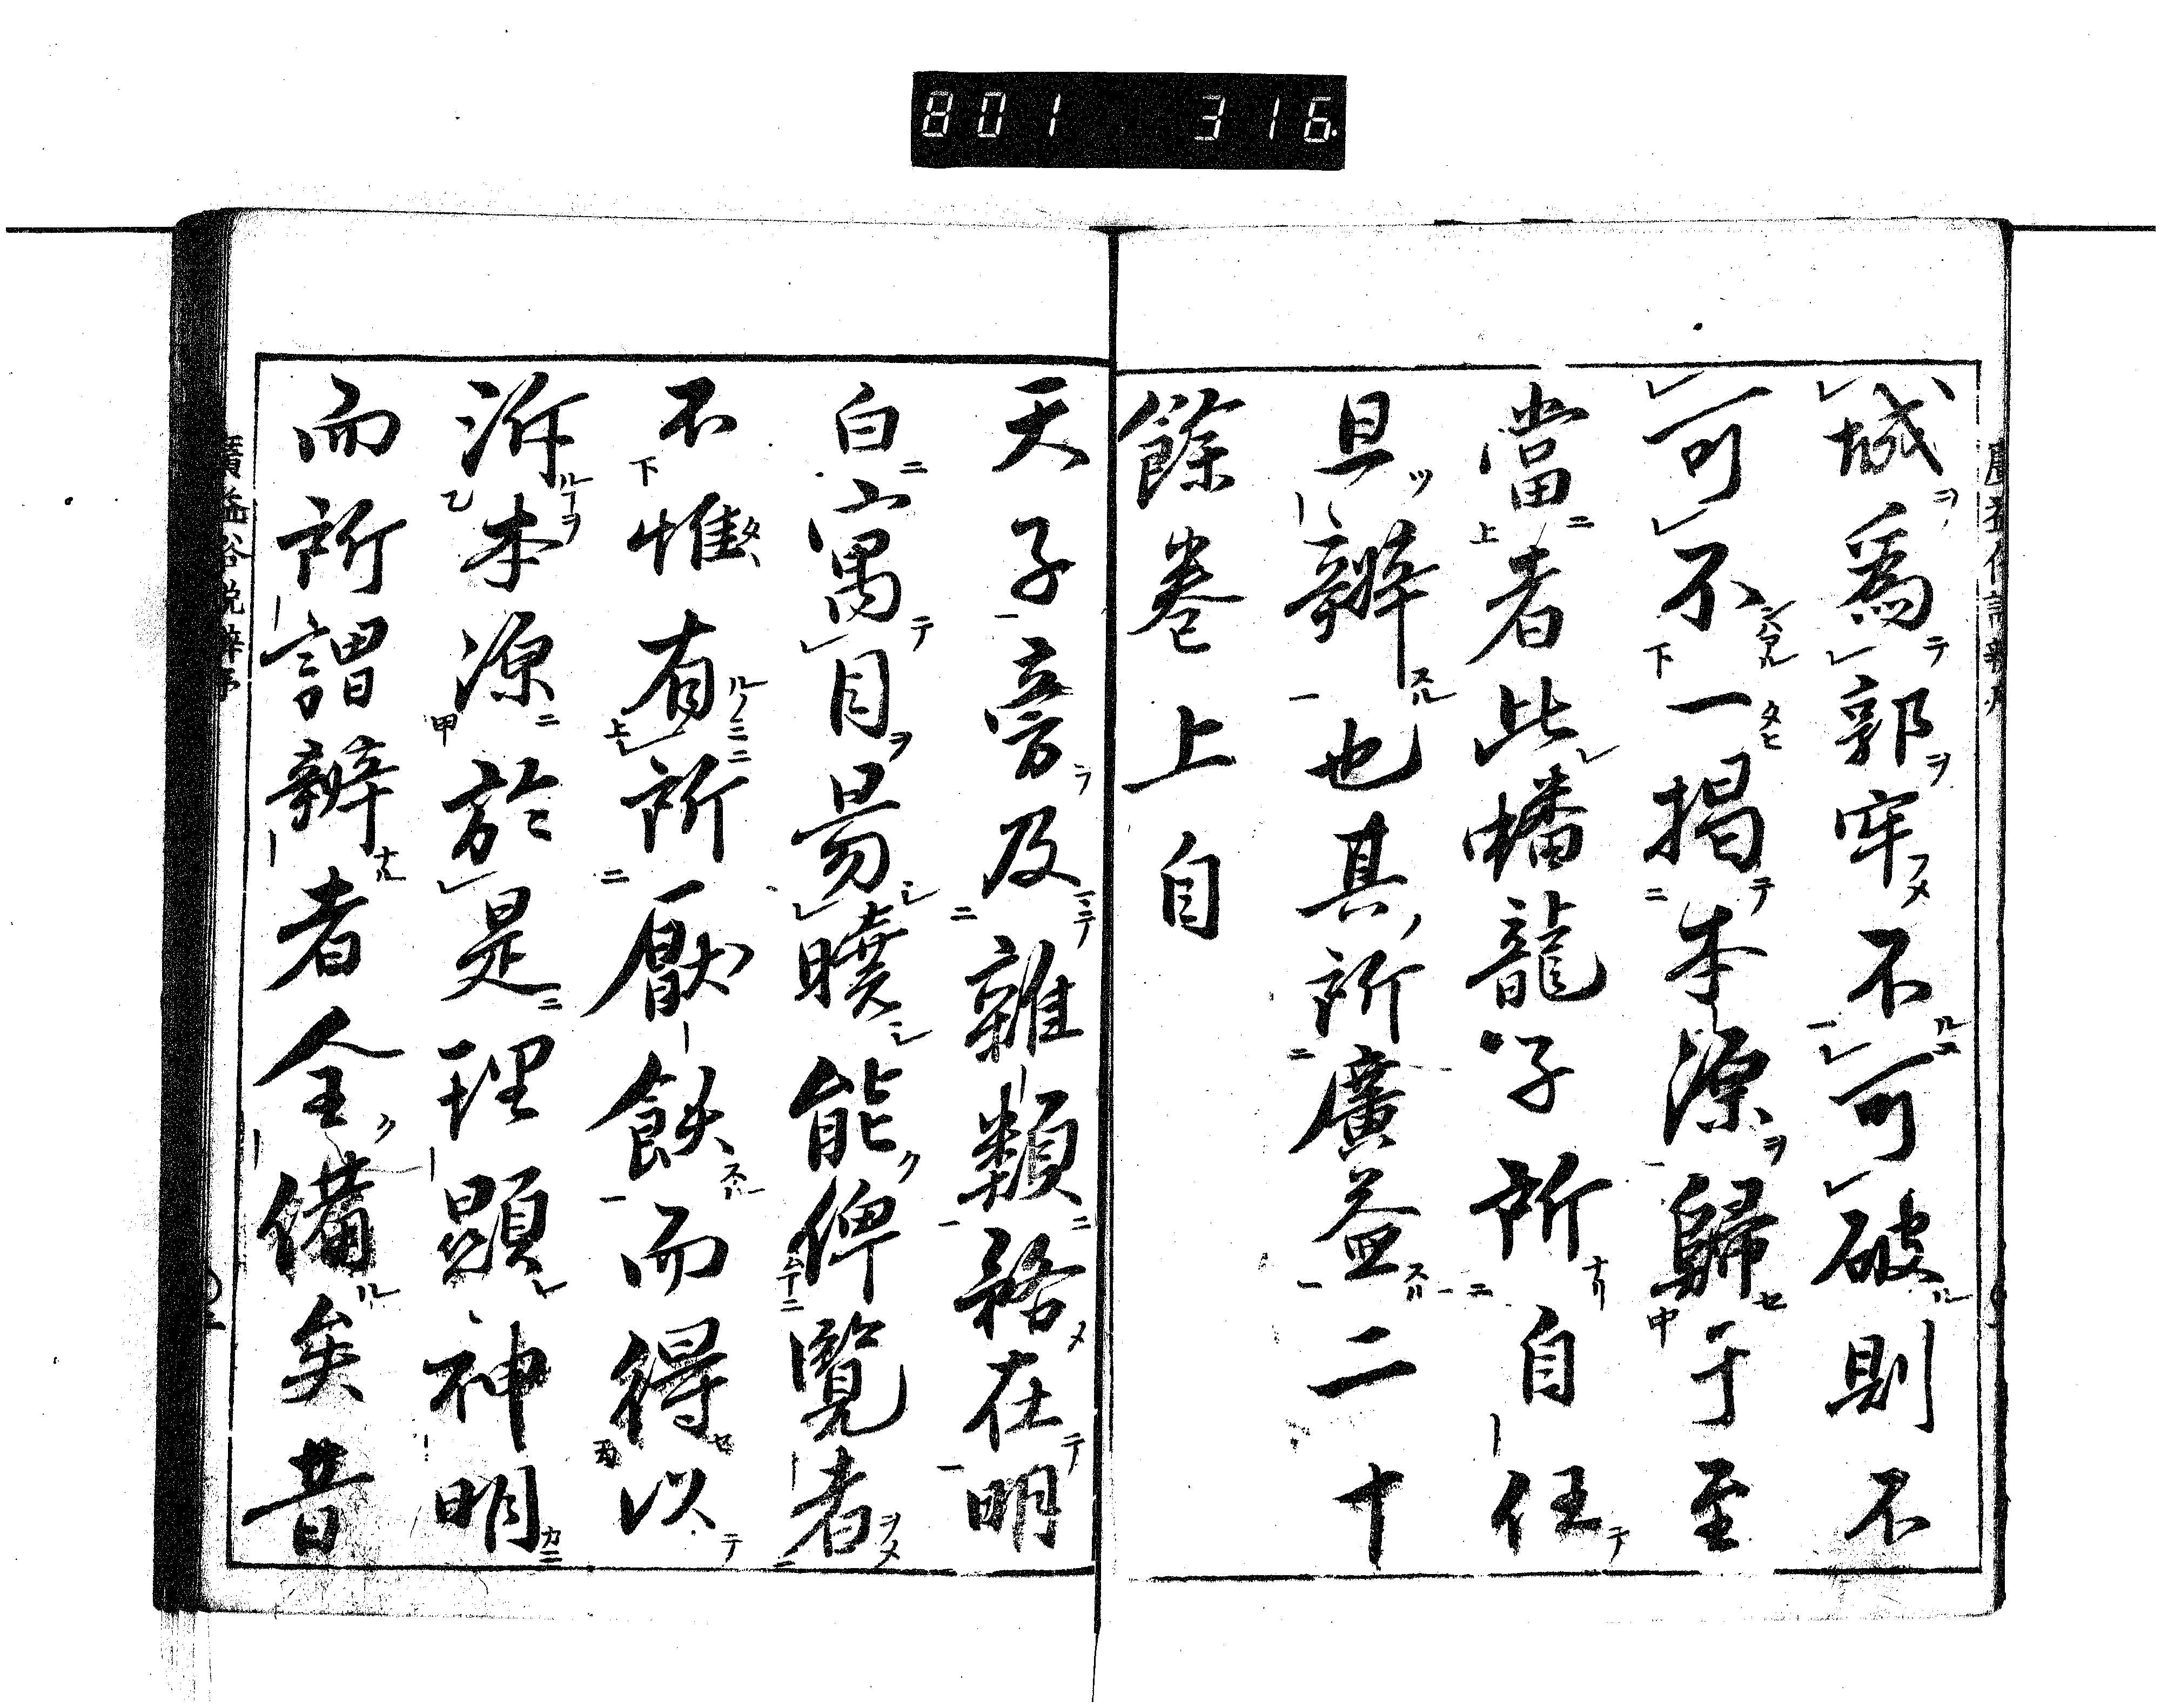 801 316
城爲郭牢不可破則不
可不一揭本源歸于至
當者此蟠龍子所自任
且辨也其所廣益二十
餘卷上自
天子旁及雜類務在明
白寓目易曉能俾覽者
不惟有所厭飫而得以
泝本源於是理顯神明
而所謂辨者全備矣昔
廣益俗説辨序